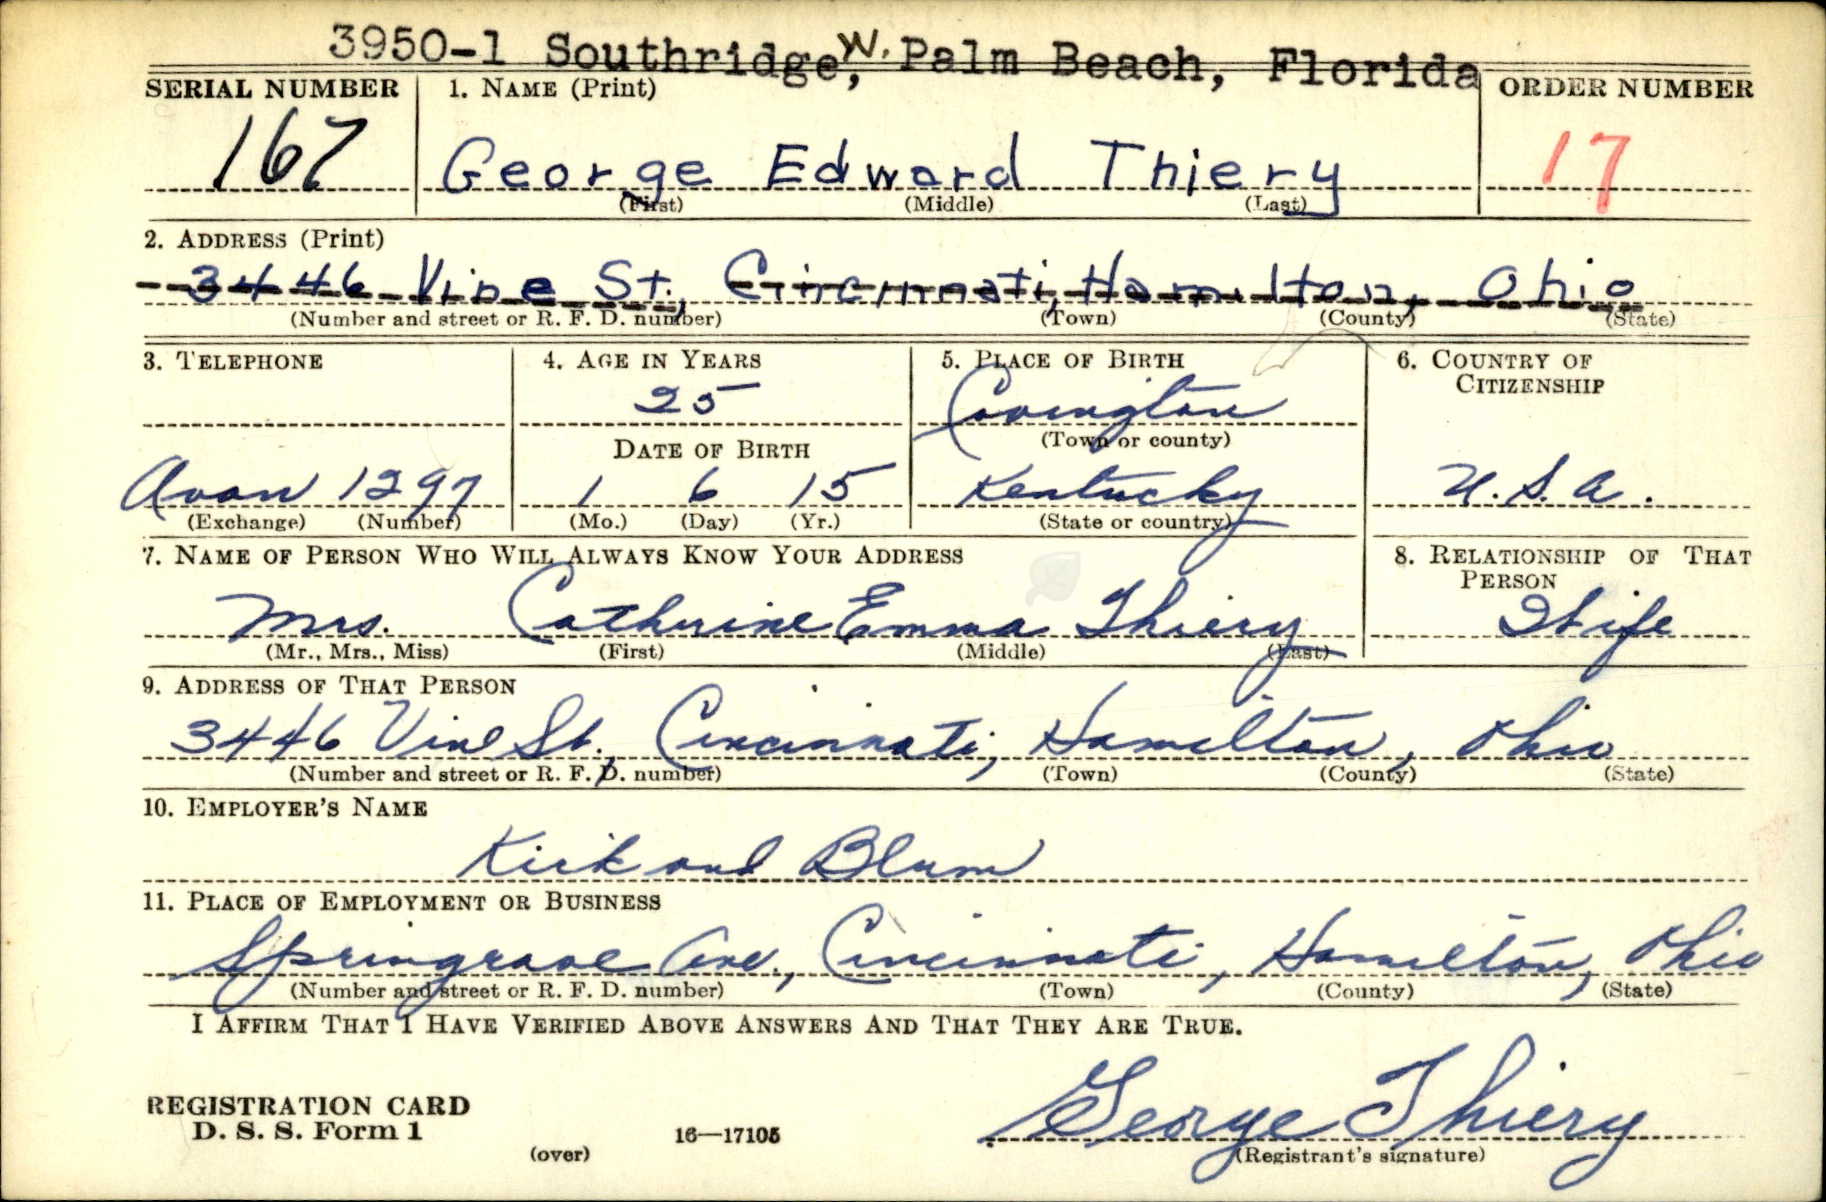 3950-1 Southridge, W. Palm Beach, Florida
SERIAL NUMBER 1. NAME (Print) ORDER NUMBER
167 George Edward Thiery 17
(First) (Middle) (Last)
2. ADDRESS (Print)
3446 Vine St., Cincinnati, Hamilton, Ohio
(Number and street or R. F. D. number) (Town) (County) (State)
3. TELEPHONE 4. AGE IN YEARS 5. PLACE OF BIRTH 6. COUNTRY OF CITIZENSHIP
25 Covington
DATE OF BIRTH (Town or county)
Avon 1297 1 6 15 Kentucky U.S.A.
(Exchange) (Number) (Mo.) (Day) (Yr.) (State or country)
7. NAME OF PERSON WHO WILL ALWAYS KNOW YOUR ADDRESS 8. RELATIONSHIP OF THAT PERSON
Mrs. Catherine Emma Thiery Wife
(Mr., Mrs., Miss) (First) (Middle) (Last)
9. ADDRESS OF THAT PERSON
3446 Vine St., Cincinnati, Hamilton, Ohio
(Number and street or R. F. D. number) (Town) (County) (State)
10. EMPLOYER'S NAME
Kirk and Blum
11. PLACE OF EMPLOYMENT OR BUSINESS
Springrove Ave., Cincinnati, Hamilton, Ohio
(Number and street or R. F. D. number) (Town) (County) (State)
I AFFIRM THAT I HAVE VERIFIED ABOVE ANSWERS AND THAT THEY ARE TRUE.
REGISTRATION CARD
D. S. S. Form 1 16—17105 George Thiery
(over) (Registrant's signature)